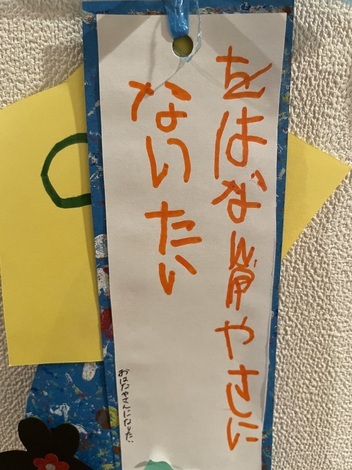 をはな やさに
ないたい
おはなやさんになりたい